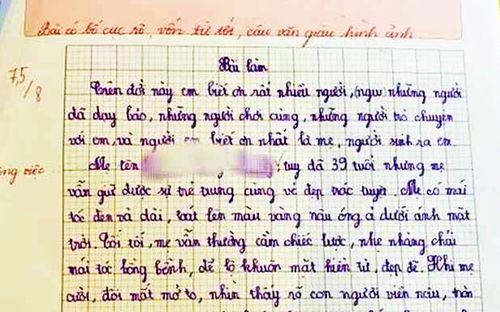 Bài có bố cục rõ, vốn từ tốt, câu văn giàu hình ảnh
7,5/8
Bài làm
Trên đời này em biết ơn rất nhiều người, như những người
đã dạy bảo, những người chơi cùng, những người trò chuyện
với em, và người em biết ơn nhất là mẹ, người sinh ra em.
Mẹ tên tuy đã 39 tuổi nhưng mẹ
vẫn giữ được sự trẻ trung cùng vẻ đẹp trác tuyệt. Mẹ có mái
tóc đen và dài, toát lên màu vàng nâu óng ả dưới ánh mặt
trời. Tối tối, mẹ vẫn thường cầm chiếc lược, nhẹ nhàng chải
mái tóc bồng bềnh, để lộ khuôn mặt hiền từ, đẹp đẽ. Khi mẹ
cười, đôi mắt mở to, nhìn thấy rõ con người viền nâu, tròn
việc